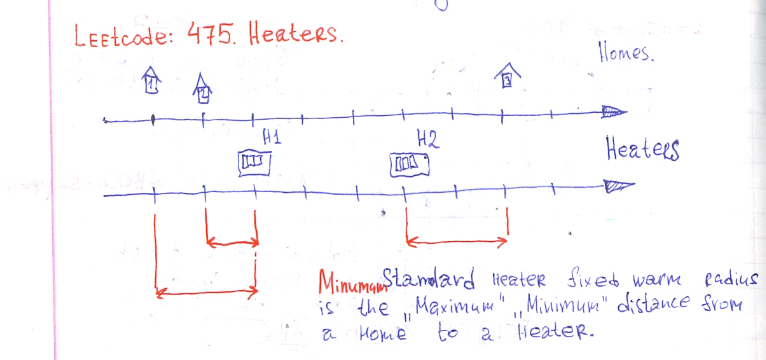 LEEtcode: 475. HeateRs.
Homes.
1
2
3
H1
H2
HeateRs
Minumum Standard HeateR fixed warm Radius
is the „Maximum" „Minimum" distance from
a Home to a HeateR.